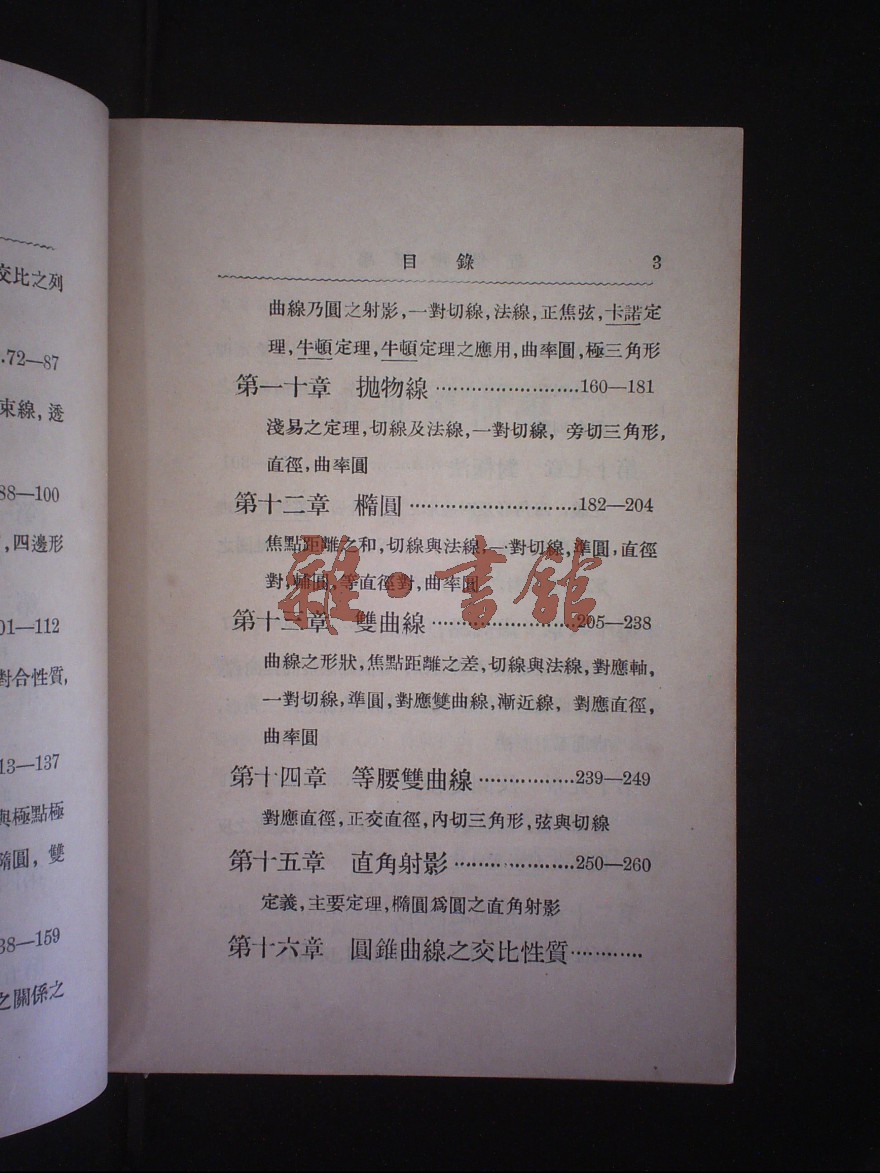 交比之列
72—87
束線,透
88—100
,四邊形
01—112
對合性質,
13—137
與極點極
隋圓, 雙
38—159
之關係之
目 錄 3
曲線乃圓之射影,一對切線,法線,正焦弦,卡諾定
理,牛頓定理,牛頓定理之應用,曲率圓,極三角形
第一十章 拋物線 ························160—181
淺易之定理,切線及法線,一對切線, 旁切三角形,
直徑,曲率圓
第十二章 橢圓 ····························182—204
焦點距離之和,切線與法線,一對切線,準圓,直徑
對,輔圓,等直徑對,曲率圓
第十三章 雙曲線 ························205—238
曲線之形狀,焦點距離之差,切線與法線,對應軸,
一對切線,準圓,對應雙曲線,漸近線, 對應直徑,
曲率圓
第十四章 等腰雙曲線 ················239—249
對應直徑,正交直徑,內切三角形,弦與切線
第十五章 直角射影 ····················250—260
定義,主要定理,橢圓爲圓之直角射影
第十六章 圓錐曲線之交比性質 ············
雜·書館